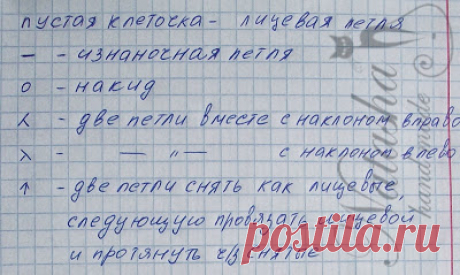 пустая клеточка - лицевая петля
— - изнаночная петля
о - накид
⋌ - две петли вместе с наклоном вправо
λ - — " — с наклоном влево
↑ - две петли снять как лицевые,
следующую провязать лицевой
и протянуть ч/з снятые
Natusha
handmade
postila.ru